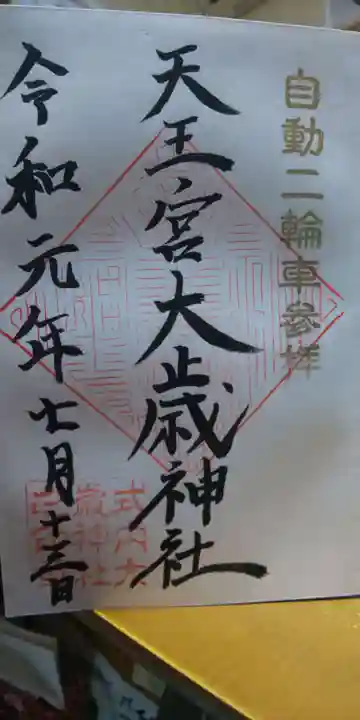 自動二輪車参拝
天王宮大歳神社
令和元年七月十三日
式内大
歳神社